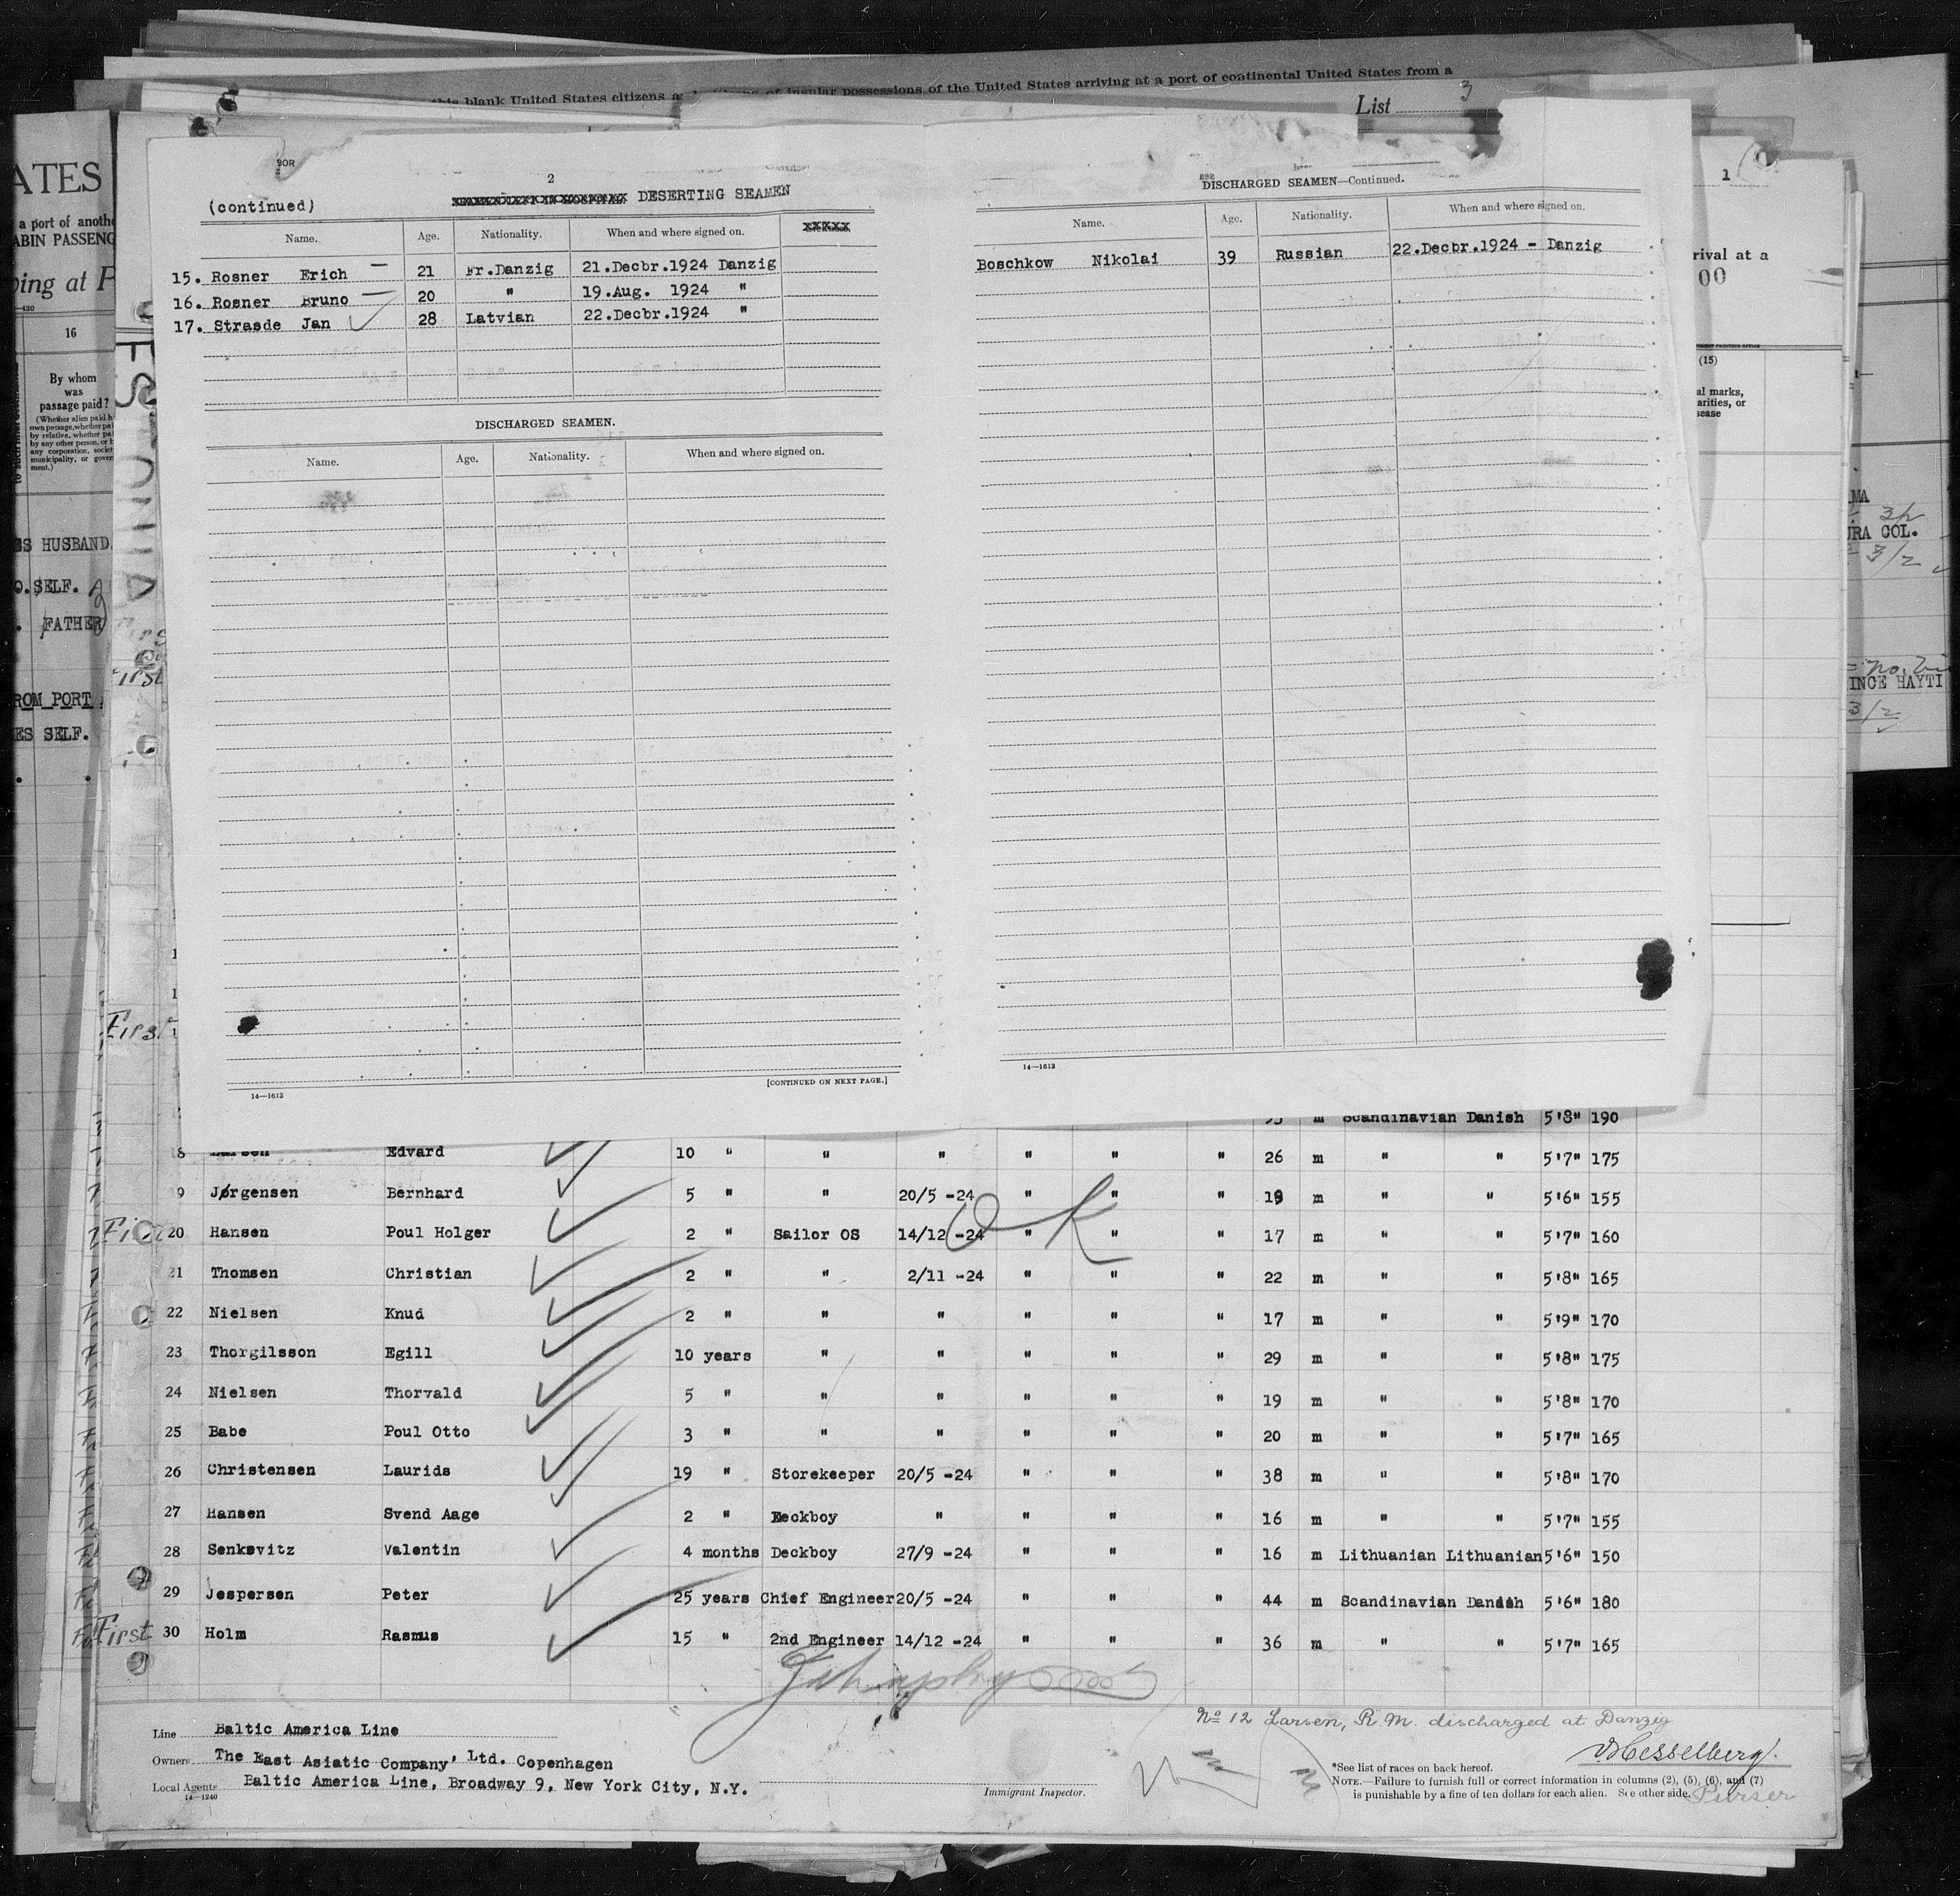 this blank United States citizens
of insular possessions of the United States arriving at a port of continental United States from a
List 3
ATES
a port of anothe
ABIN PASSENG
ping at P
16
By whom
was
passage paid?
(Whether alien paid h
own passage, whether pai
by relative, whether pai
by any other person, or b
any corporation, societ
municipality, or gover
ment.)
SS HUSBAND
O. SELF.
FATHER
ROM PORT
ES SELF.
ESTONIA
First
First
First
2
(continued) DESERTING SEAMEN
Name. Age. Nationality. When and where signed on. XXXXX
15. Rosner Erich — 21 Fr.Danzig 21.Decbr.1924 Danzig
16. Rosner Bruno — 20 " 19.Aug. 1924 "
17. Strasde Jan ✓ 28 Latvian 22.Decbr.1924 "
DISCHARGED SEAMEN.
Name. Age. Nationality. When and where signed on.
[CONTINUED ON NEXT PAGE.]
14—1613
DISCHARGED SEAMEN—Continued.
Name. Age. Nationality. When and where signed on.
Boschkow Nikolai 39 Russian 22.Decbr.1924 - Danzig
14—1613
1
rival at a
00
(15)
al marks,
arities, or
sease
MA
3/2
URA COL.
3/2
INCE HAYTI
3/2
m Scandinavian Danish 5'8" 190
18 Larsen Edvard 10 " " " " " " 26 m " " 5'7" 175
9 Jørgensen Bernhard 5 " " 20/5 -24 " " " 19 m " " 5'6" 155
OK
20 Hansen Poul Holger 2 " Sailor OS 14/12 -24 " " " 17 m " " 5'7" 160
21 Thomsen Christian 2 " " 2/11 -24 " " " 22 m " " 5'8" 165
22 Nielsen Knud 2 " " " " " " 17 m " " 5'9" 170
23 Thorgilsson Egill 10 years " " " " " 29 m " " 5'8" 175
24 Nielsen Thorvald 5 " " " " " " 19 m " " 5'8" 170
25 Babe Poul Otto 3 " " " " " " 20 m " " 5'7" 165
26 Christensen Laurids 19 " Storekeeper 20/5 -24 " " " 38 m " " 5'8" 170
27 Hansen Svend Aage 2 " Deckboy " " " " 16 m " " 5'7" 155
28 Senkevitz Valentin 4 months Deckboy 27/9 -24 " " " 16 m Lithuanian Lithuanian 5'6" 150
29 Jespersen Peter 25 years Chief Engineer 20/5 -24 " " " 44 m Scandinavian Danish 5'6" 180
First 30 Holm Rasmus 15 " 2nd Engineer 14/12 -24 " " " 36 m " " 5'7" 165
No 12 Larsen, R.M. discharged at Danzig
Line Baltic America Line
Owners The East Asiatic Company, Ltd. Copenhagen
Local Agents Baltic America Line, Broadway 9, New York City, N.Y.
14—1240
Immigrant Inspector.
Hesselberg.
*See list of races on back hereof.
NOTE.—Failure to furnish full or correct information in columns (2), (5), (6), and (7)
is punishable by a fine of ten dollars for each alien. See other side.
Purser